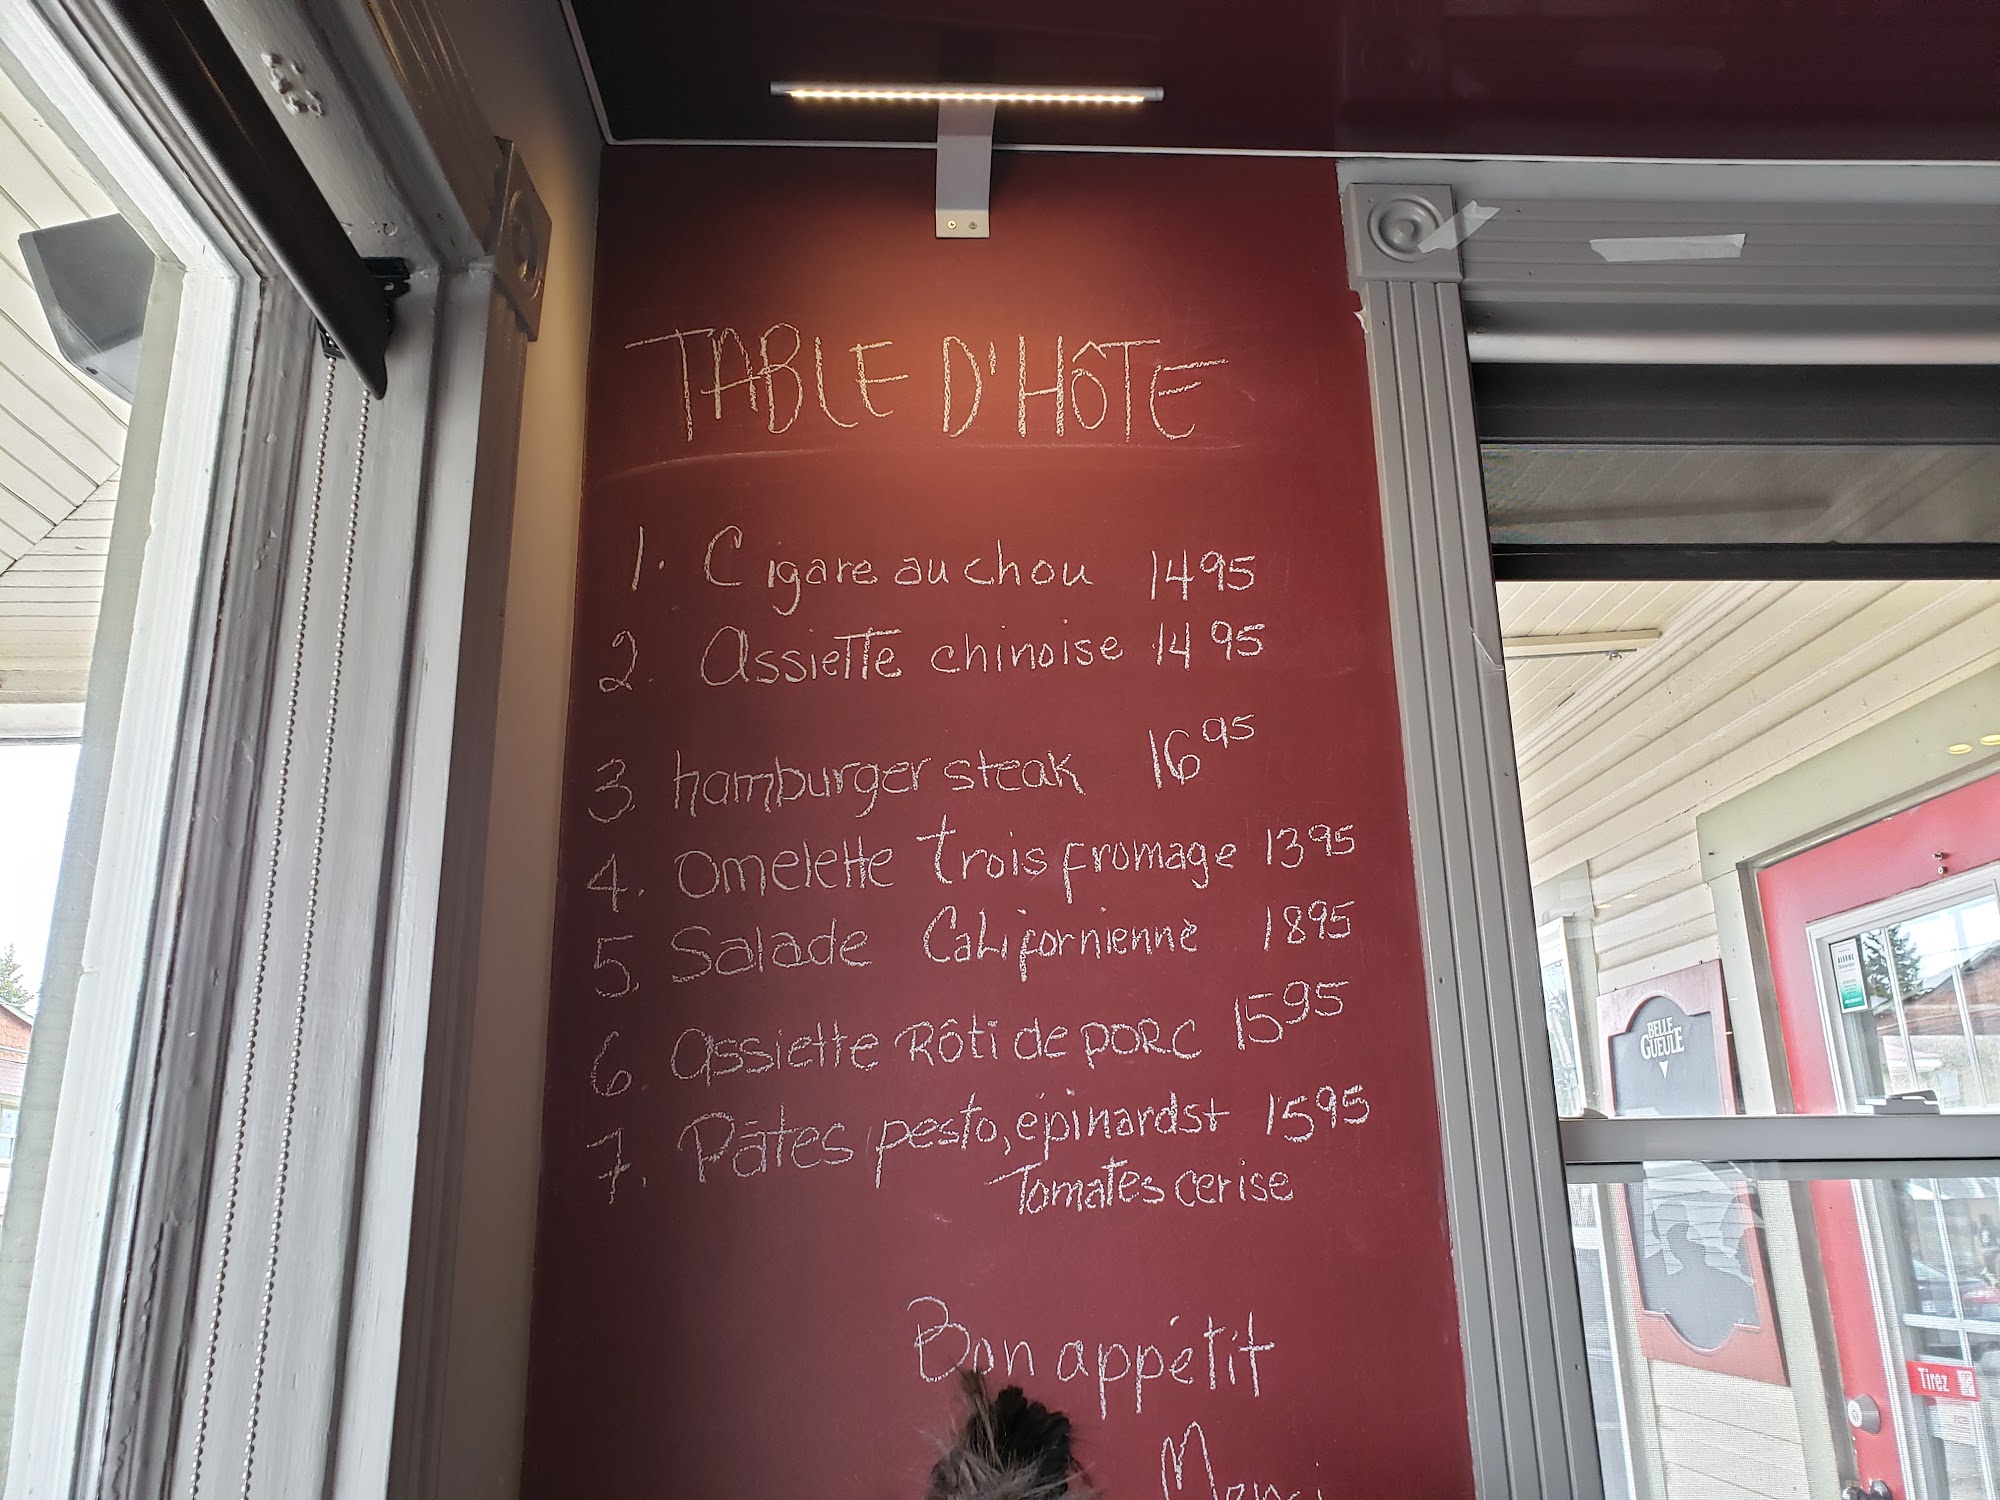 TABLE D'HÔTE
1. Cigare au chou 1495
2. Assiette chinoise 1495
3. hamburger steak 1695
4. Omelette trois fromage 1395
5. Salade Californienne 1895
6. Assiette Rôti de PORC 1595
7. Pâtes pesto, épinardst 1595
Tomates cerise
Bon appétit
Merci
BELLE
GUEULE
Tirez